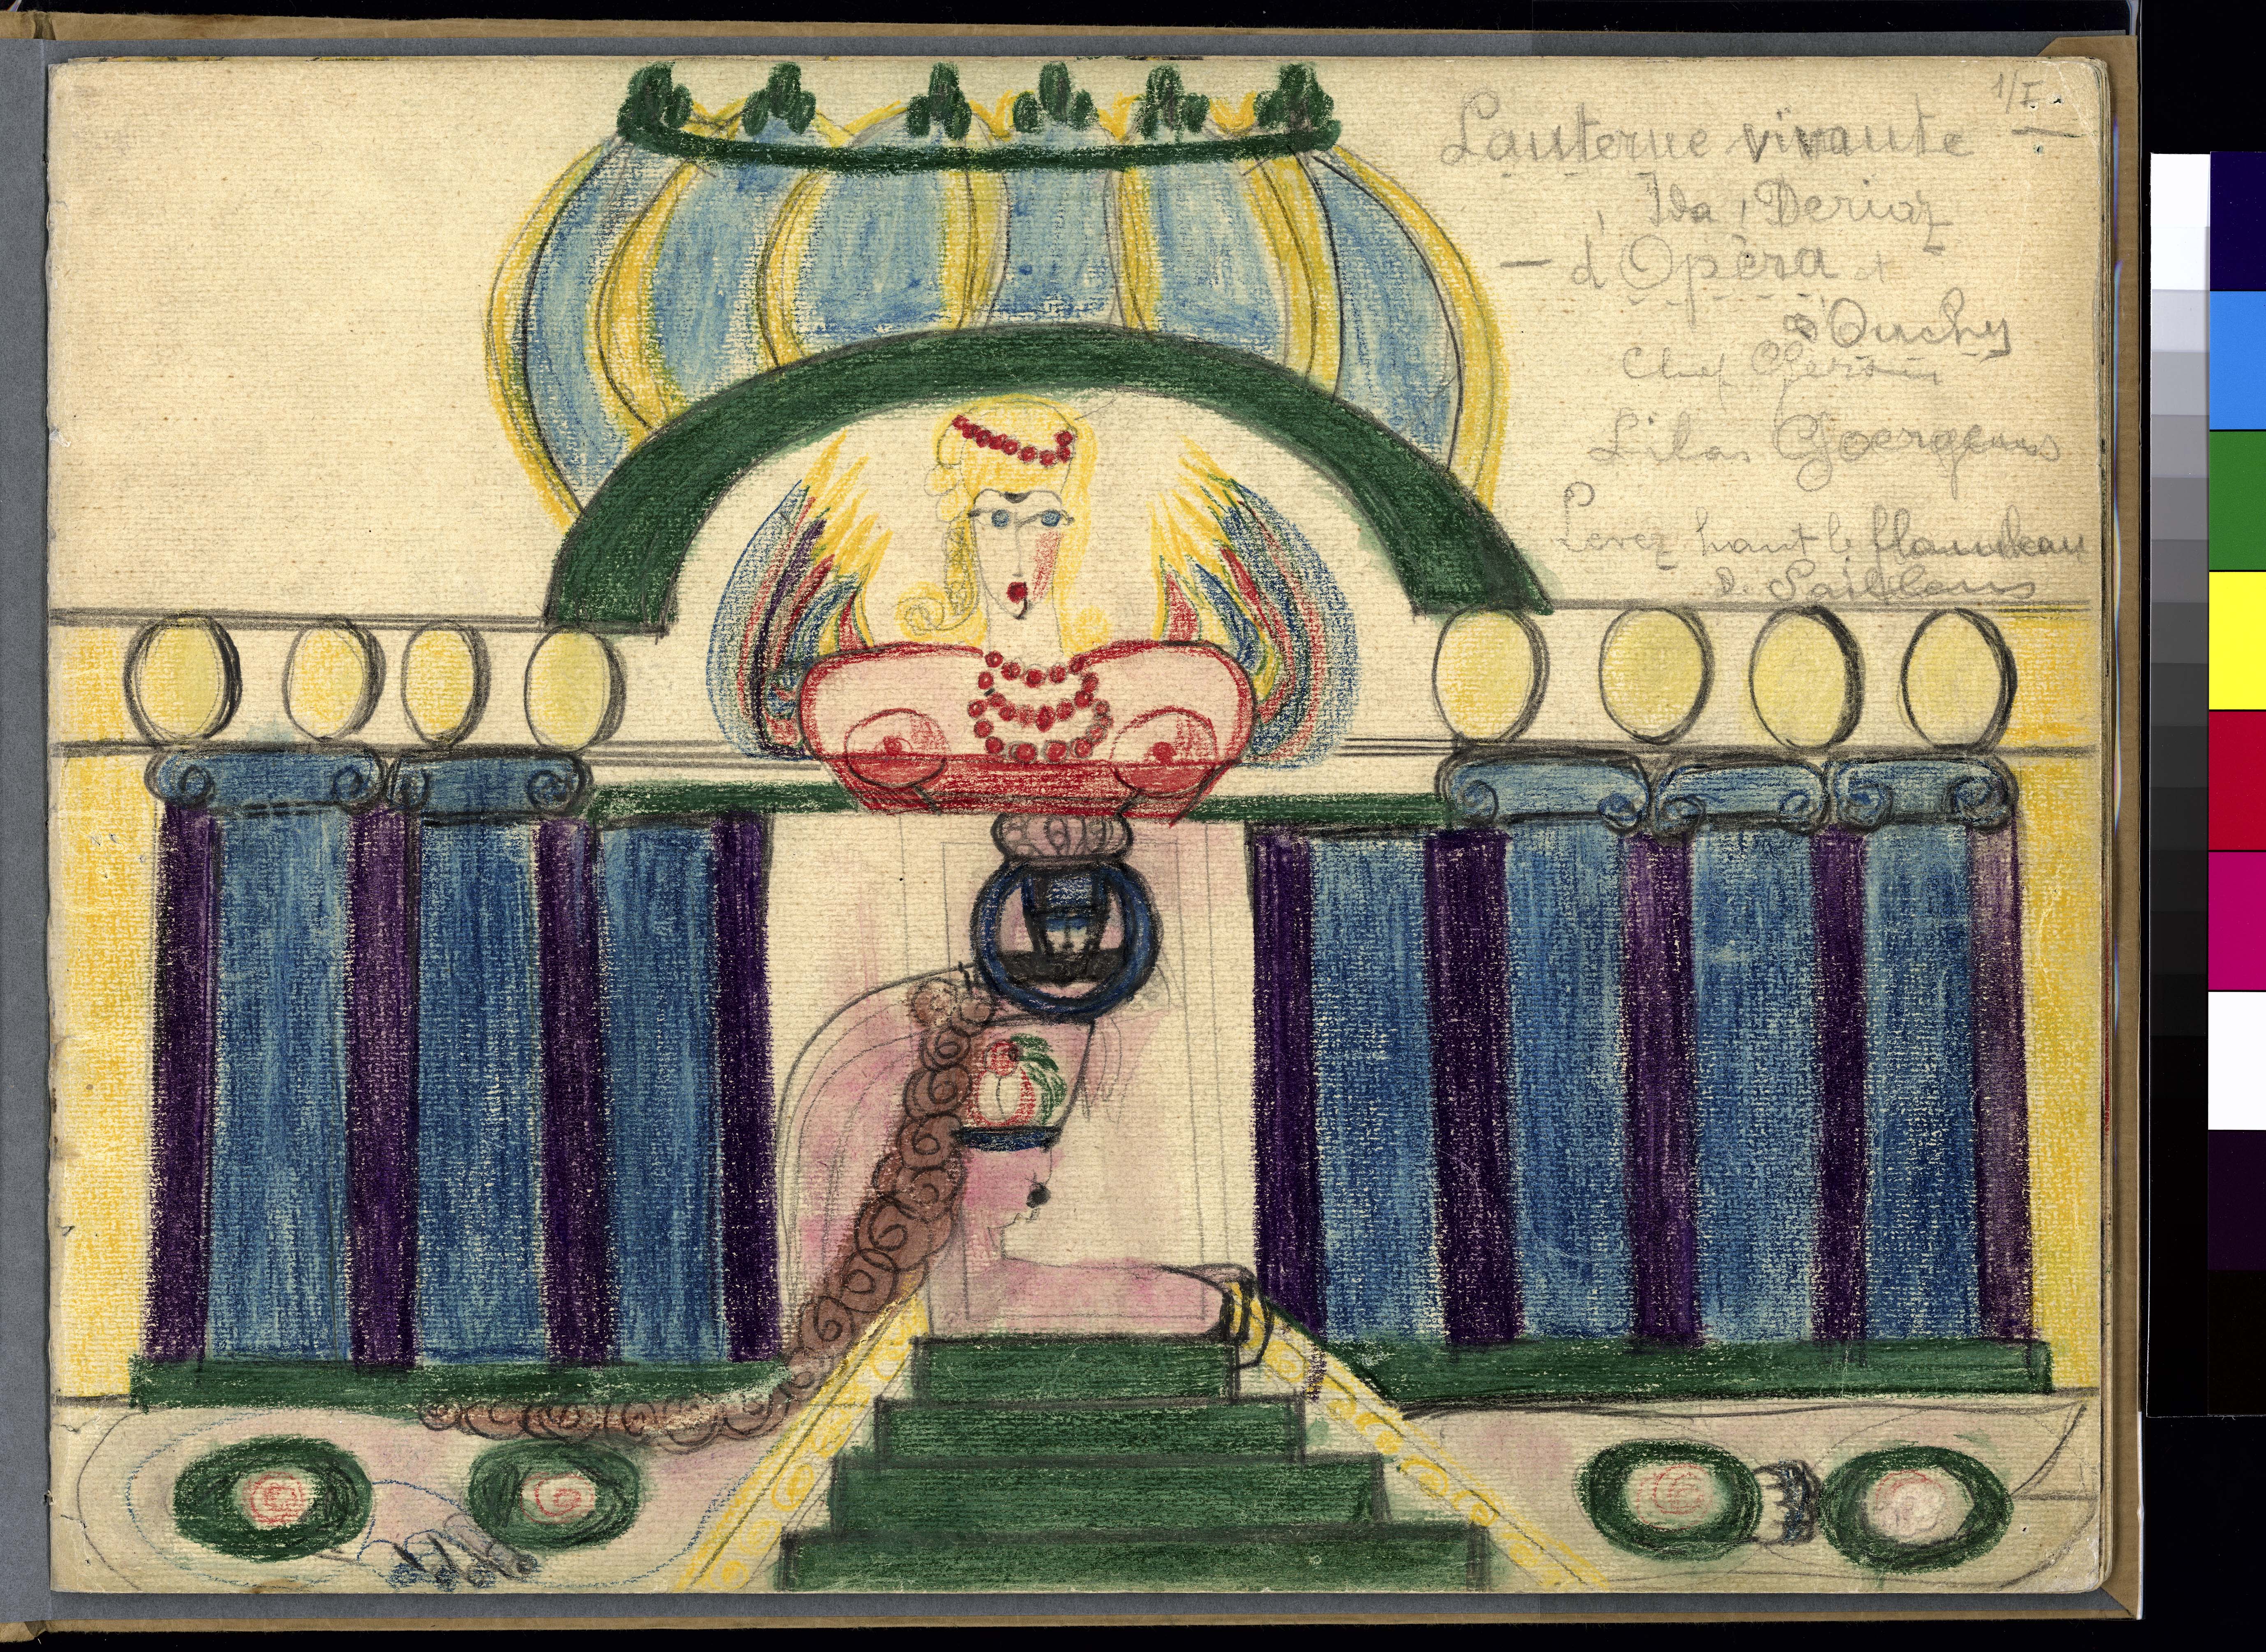 1/I
Lanterne vivante
Ida Deriaz
— d'Opéra et
d'Ouchy
Lilas Goergens
Levez haut le flambeau
d. Saillens